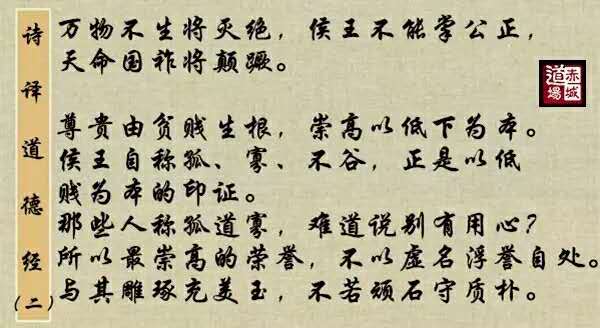 诗译道德经
（二）
万物不生将灭绝，侯王不能掌公正，
天命国祚将颠蹶。
尊贵由贫贱生根，崇高以低下为本。
侯王自称孤、寡、不谷，正是以低
贱为本的印证。
那些人称孤道寡，难道说别有用心？
所以最崇高的荣誉，不以虚名浮誉自处。
与其雕琢充美玉，不若顽石守质朴。
赤城
道場